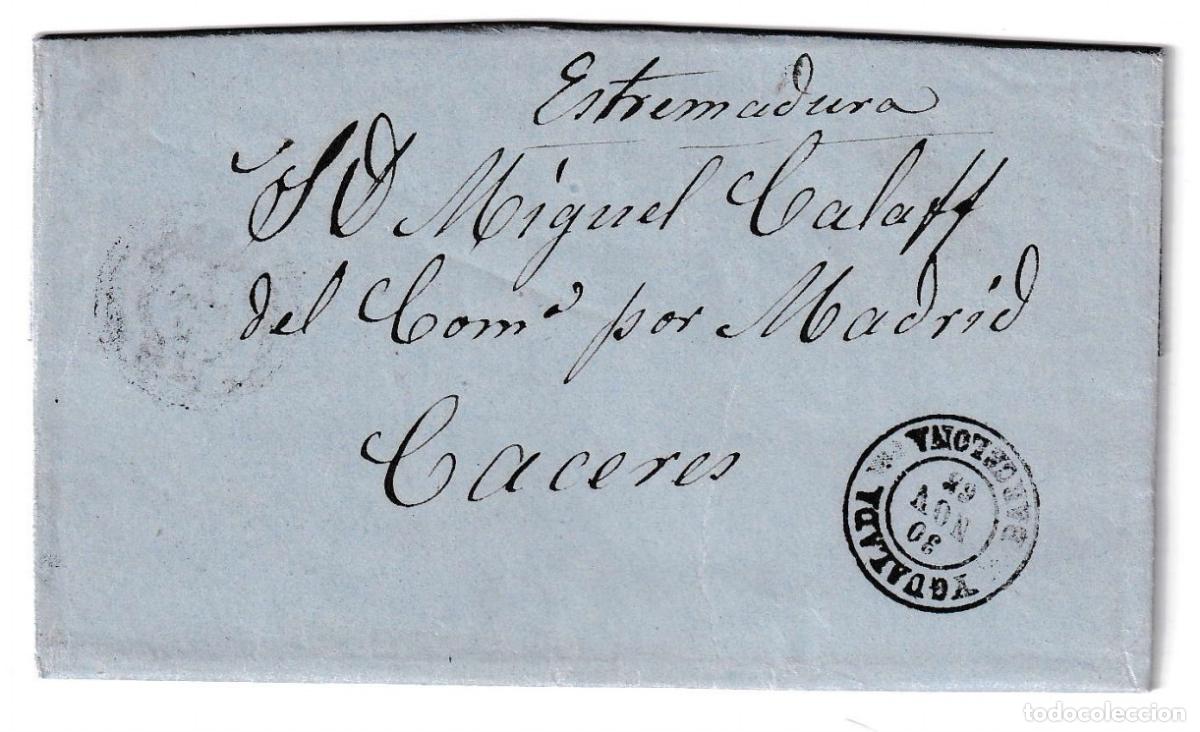 Estremadura
S D Miguel Calaff
del Comº por Madrid
Caceres
YGUALADA BARCELONA
30
NOV
65
todocoleccion